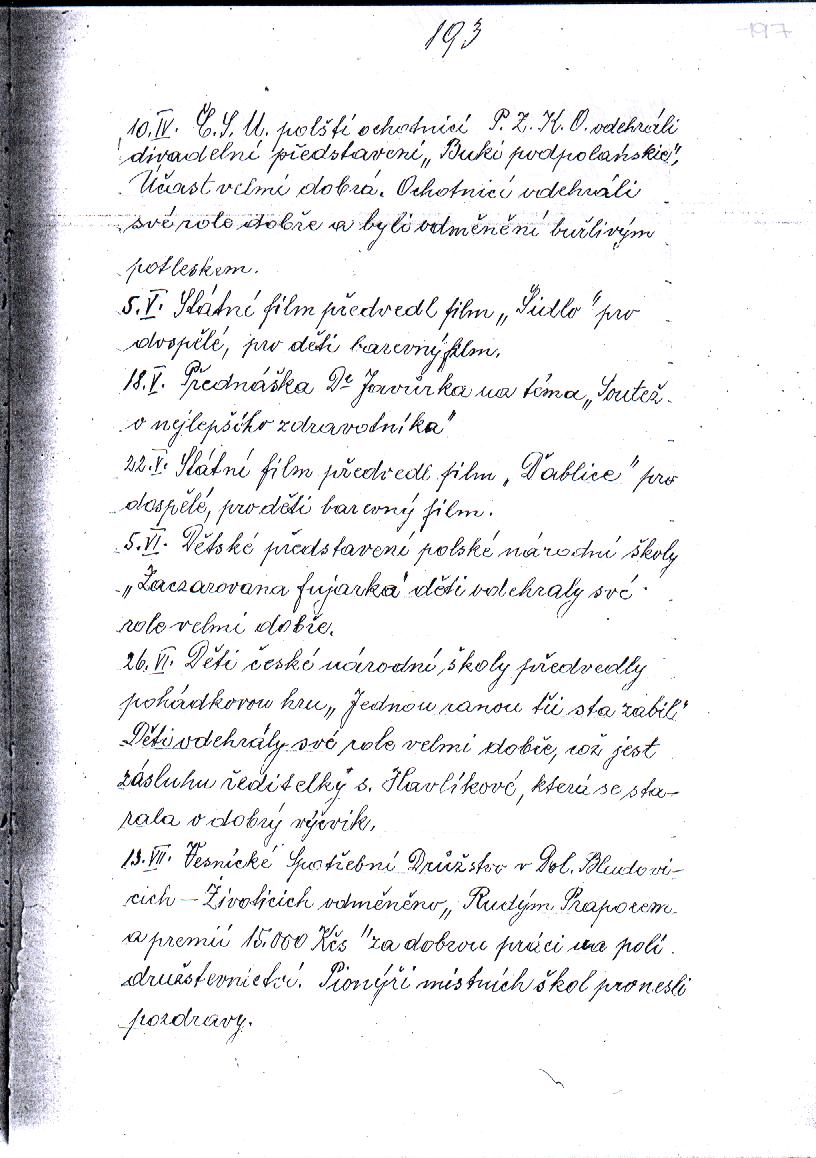 193
197
10.IV. Č.S.U. polští ochotnící P.Z.K.O. odehráli
divadelní představení „Buki podpolańskie",
Účast velmi dobrá. Ochotnící odehráli
své role dobře a byli odměnění bužlivým
potleskem.
5.V. Státní film předvedl film „Šidlo" pro
dospělé, pro děti barevný film.
18.V. Přednáška Dr Javůrka na téma „Soutež
o nejlepšího zdravotníka"
22.V. Státní film předvedl film „Ďablice" pro
dospělé, pro děti barevný film.
5.VI. Dětské představení polské národní školy
„Zaczarovana fujarka" děti odehraly své
role velmi dobře.
26.VI. Děti české národní školy předvedly
pohádkovou hru „Jednou ranou tři sta zabil"
Děti odehrály své role velmi dobře, což jest
zásluhu ředitelky s. Havlíkové, která se sta-
rala o dobrý výcvik.
13.VII. Vesnické Spotřební Družstvo v Dol. Bludovi-
cích – Životicích odměněno „Rudým Praporem
a premií 15.000 Kčs" za dobrou práci na poli
družstevnictví. Pionýři místních škol pronesli
pozdravy.